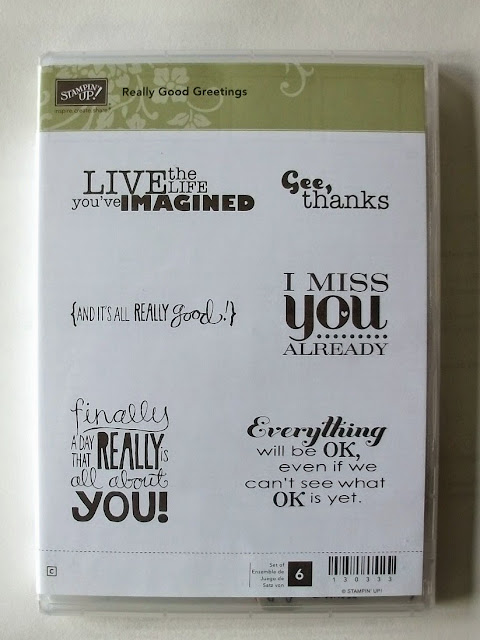 STAMPIN' UP!
inspire.create.share.
Really Good Greetings
LIVE the LIFE
you've IMAGINED
Gee,
thanks
{AND IT'S ALL REALLY good!}
I MISS
you
ALREADY
finally
A DAY THAT REALLY is
all about
YOU!
Everything
will be OK,
even if we
can't see what
OK is yet.
C
Set of
Ensemble de
Juego de
Sets von
6
130333
© STAMPIN' UP!